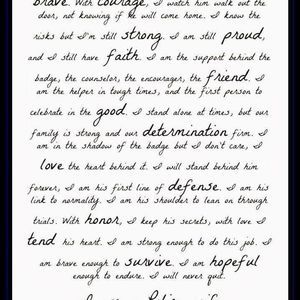 brave. With courage, I watch him walk out the
door, not knowing if he will come home. I know the
risks but I'm still strong. I am still proud,
and I still have faith. I am the support behind the
badge, the counselor, the encourager, the friend. I
am the helper in tough times, and the first person to
celebrate in the good. I stand alone at times, but our
family is strong and our determination firm. I
am in the shadow of the badge but I don't care, I
love the heart behind it. I will stand behind him
forever, I am his first line of defense. I am his
link to normality. I am his shoulder to lean on through
trials. With honor, I keep his secrets, with love I
tend his heart. I am strong enough to do this job. I
am brave enough to survive. I am hopeful
enough to endure. I will never quit.